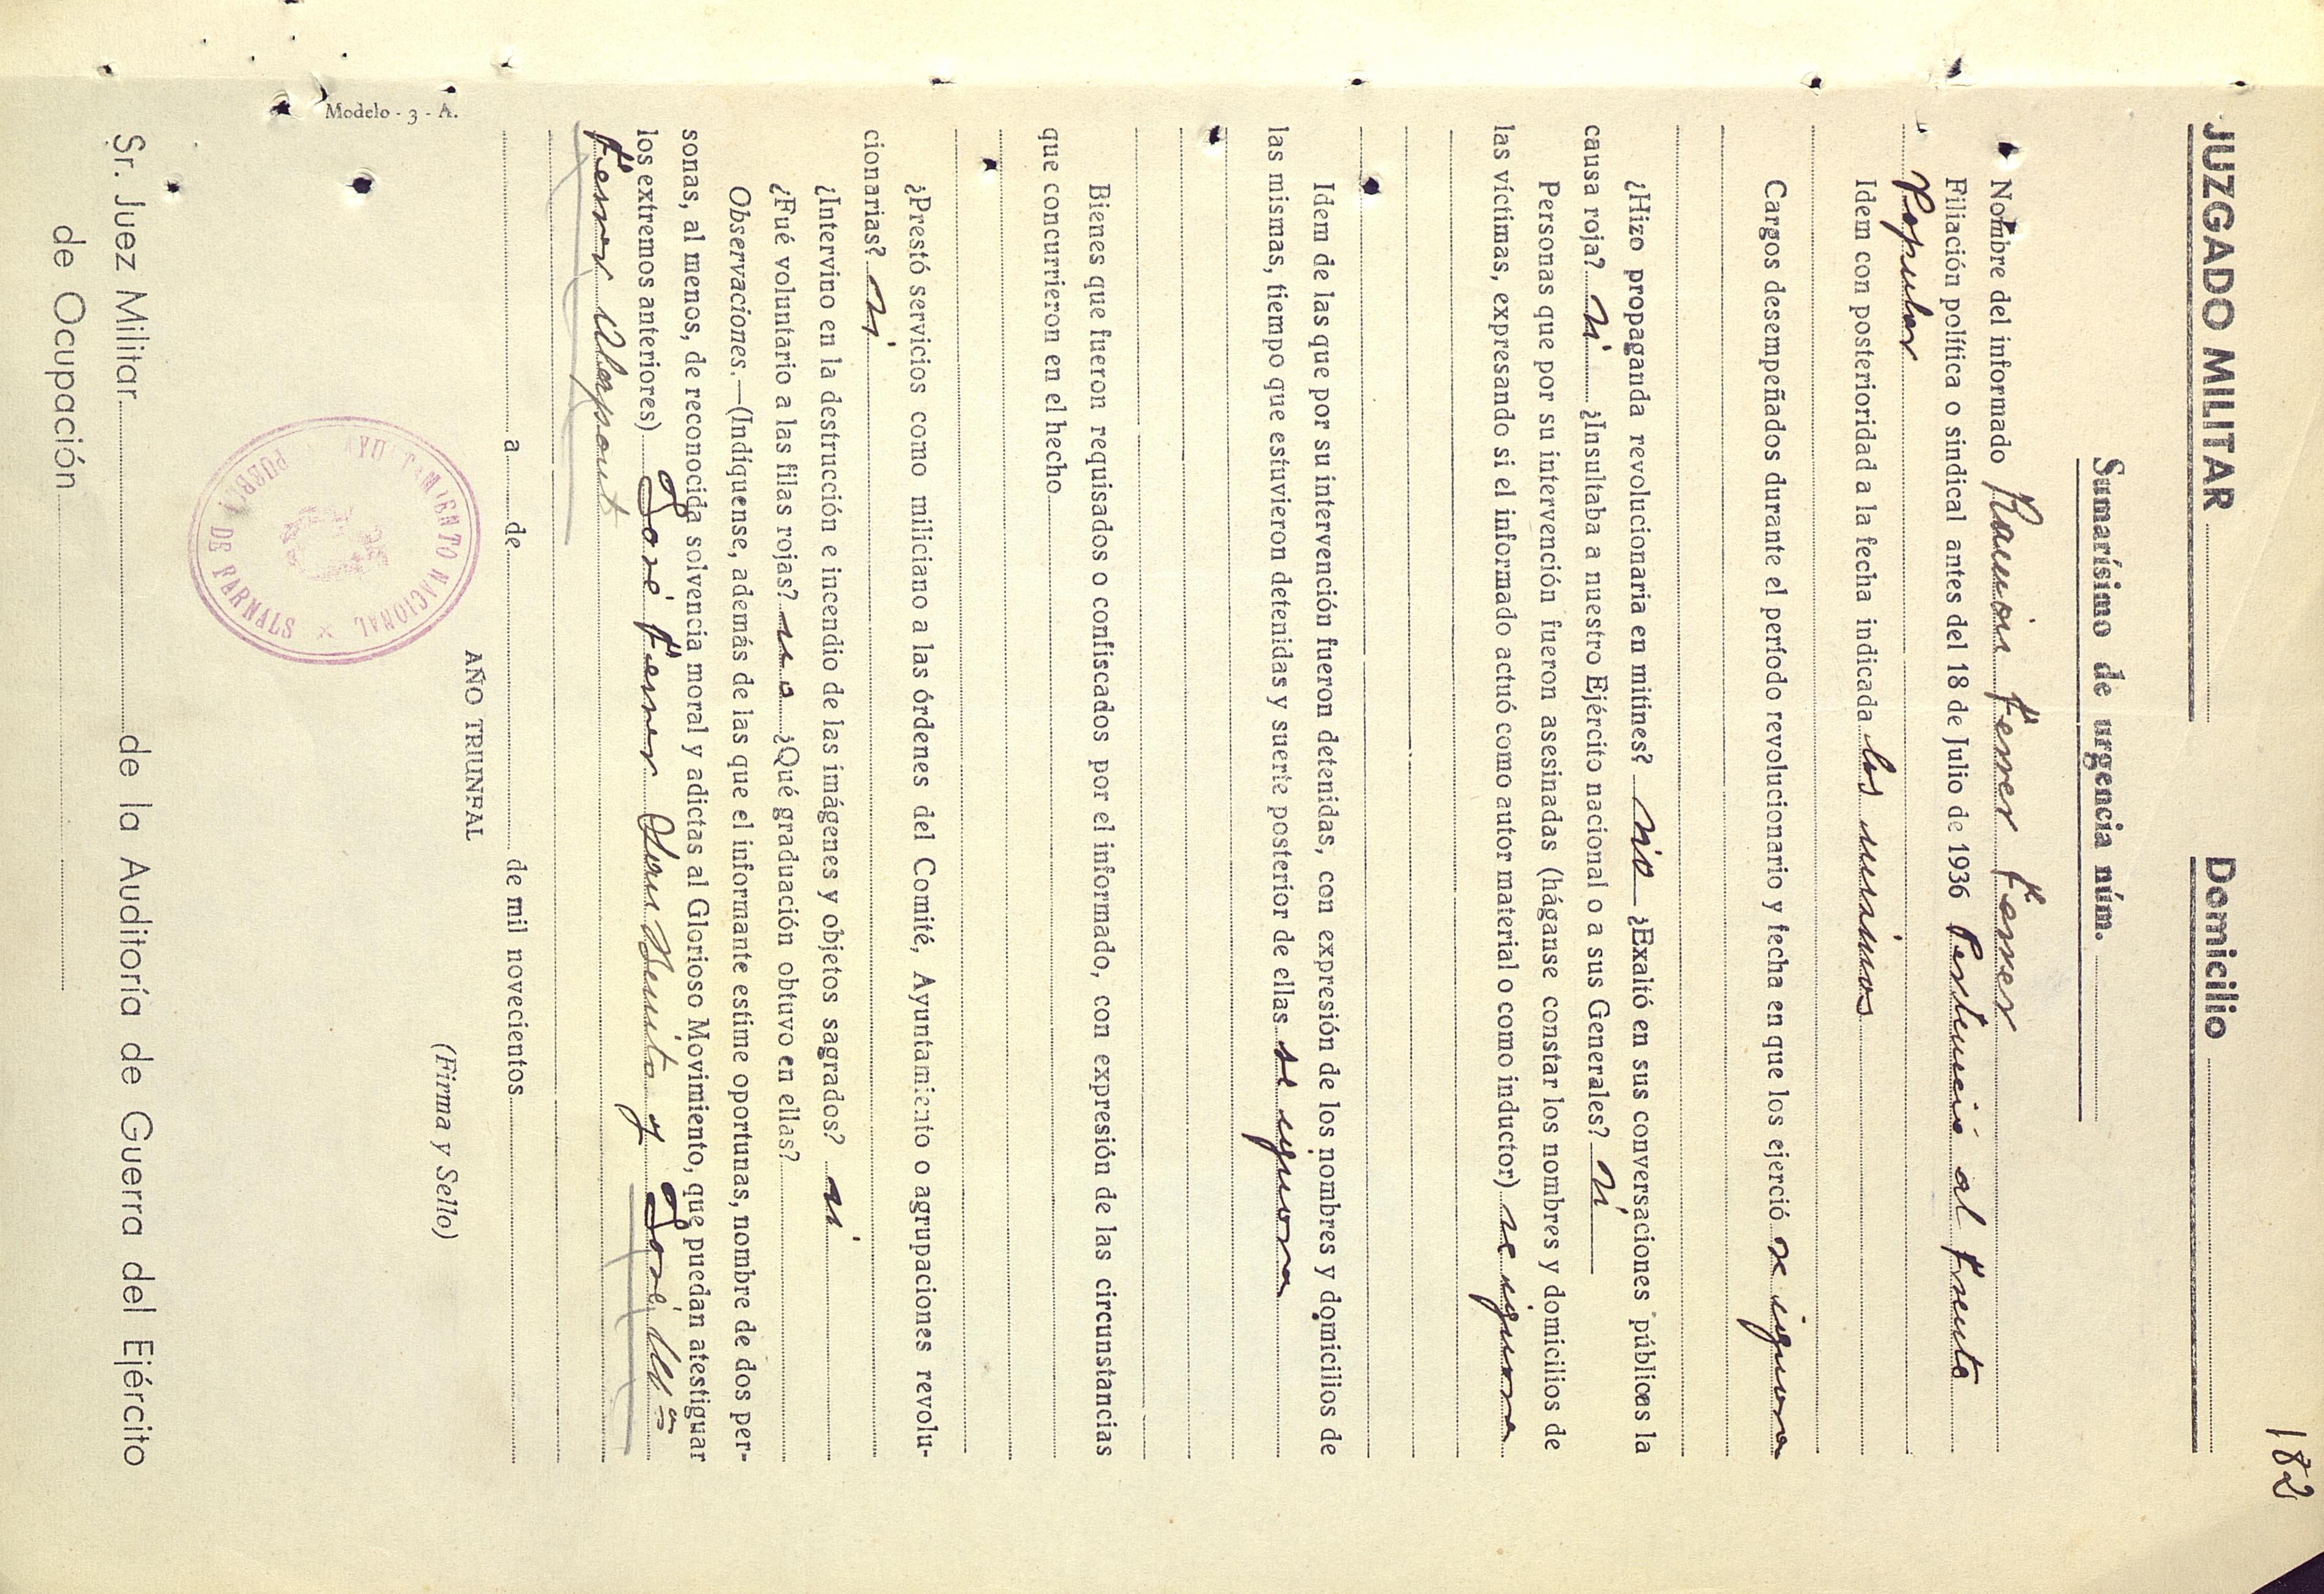 182
JUZGADO MILITAR Domicilio
Sumarísimo de urgencia núm.
Nombre del informado Ramón Ferrer Ferrer
Filiación política o sindical antes del 18 de Julio de 1936 Pertenecio al Frente
Popular
Idem con posterioridad a la fecha indicada los mismos
Cargos desempeñados durante el período revolucionario y fecha en que los ejerció se ignora
¿Hizo propaganda revolucionaria en mitines? no ¿Exaltó en sus conversaciones públicas la
causa roja? si ¿Insultaba a nuestro Ejército nacional o a sus Generales? si
Personas que por su intervención fueron asesinadas (háganse constar los nombres y domicilios de
las víctimas, expresando si el informado actuó como autor material o como inductor) se ignora
Idem de las que por su intervención fueron detenidas, con expresión de los nombres y domicilios de
las mismas, tiempo que estuvieron detenidas y suerte posterior de ellas se ignora
Bienes que fueron requisados o confiscados por el informado, con expresión de las circunstancias
que concurrieron en el hecho
¿Prestó servicios como miliciano a las órdenes del Comité, Ayuntamiento o agrupaciones revolu-
cionarias? si
¿Intervino en la destrucción e incendio de las imágenes y objetos sagrados? si
¿Fué voluntario a las filas rojas? no ¿Qué graduación obtuvo en ellas?
Observaciones.—(Indíquense, además de las que el informante estime oportunas, nombre de dos per-
sonas, al menos, de reconocida solvencia moral y adictas al Glorioso Movimiento, que puedan atestiguar
los extremos anteriores) José Ferrer y José Mª
Ferrer
a de de mil novecientos
AÑO TRIUNFAL
(Firma y Sello)
AYUNTAMIENTO NACIONAL PUEBLA DE FARNALS
Modelo - 3 - A.
Sr. Juez Militar de la Auditoría de Guerra del Ejército
de Ocupación